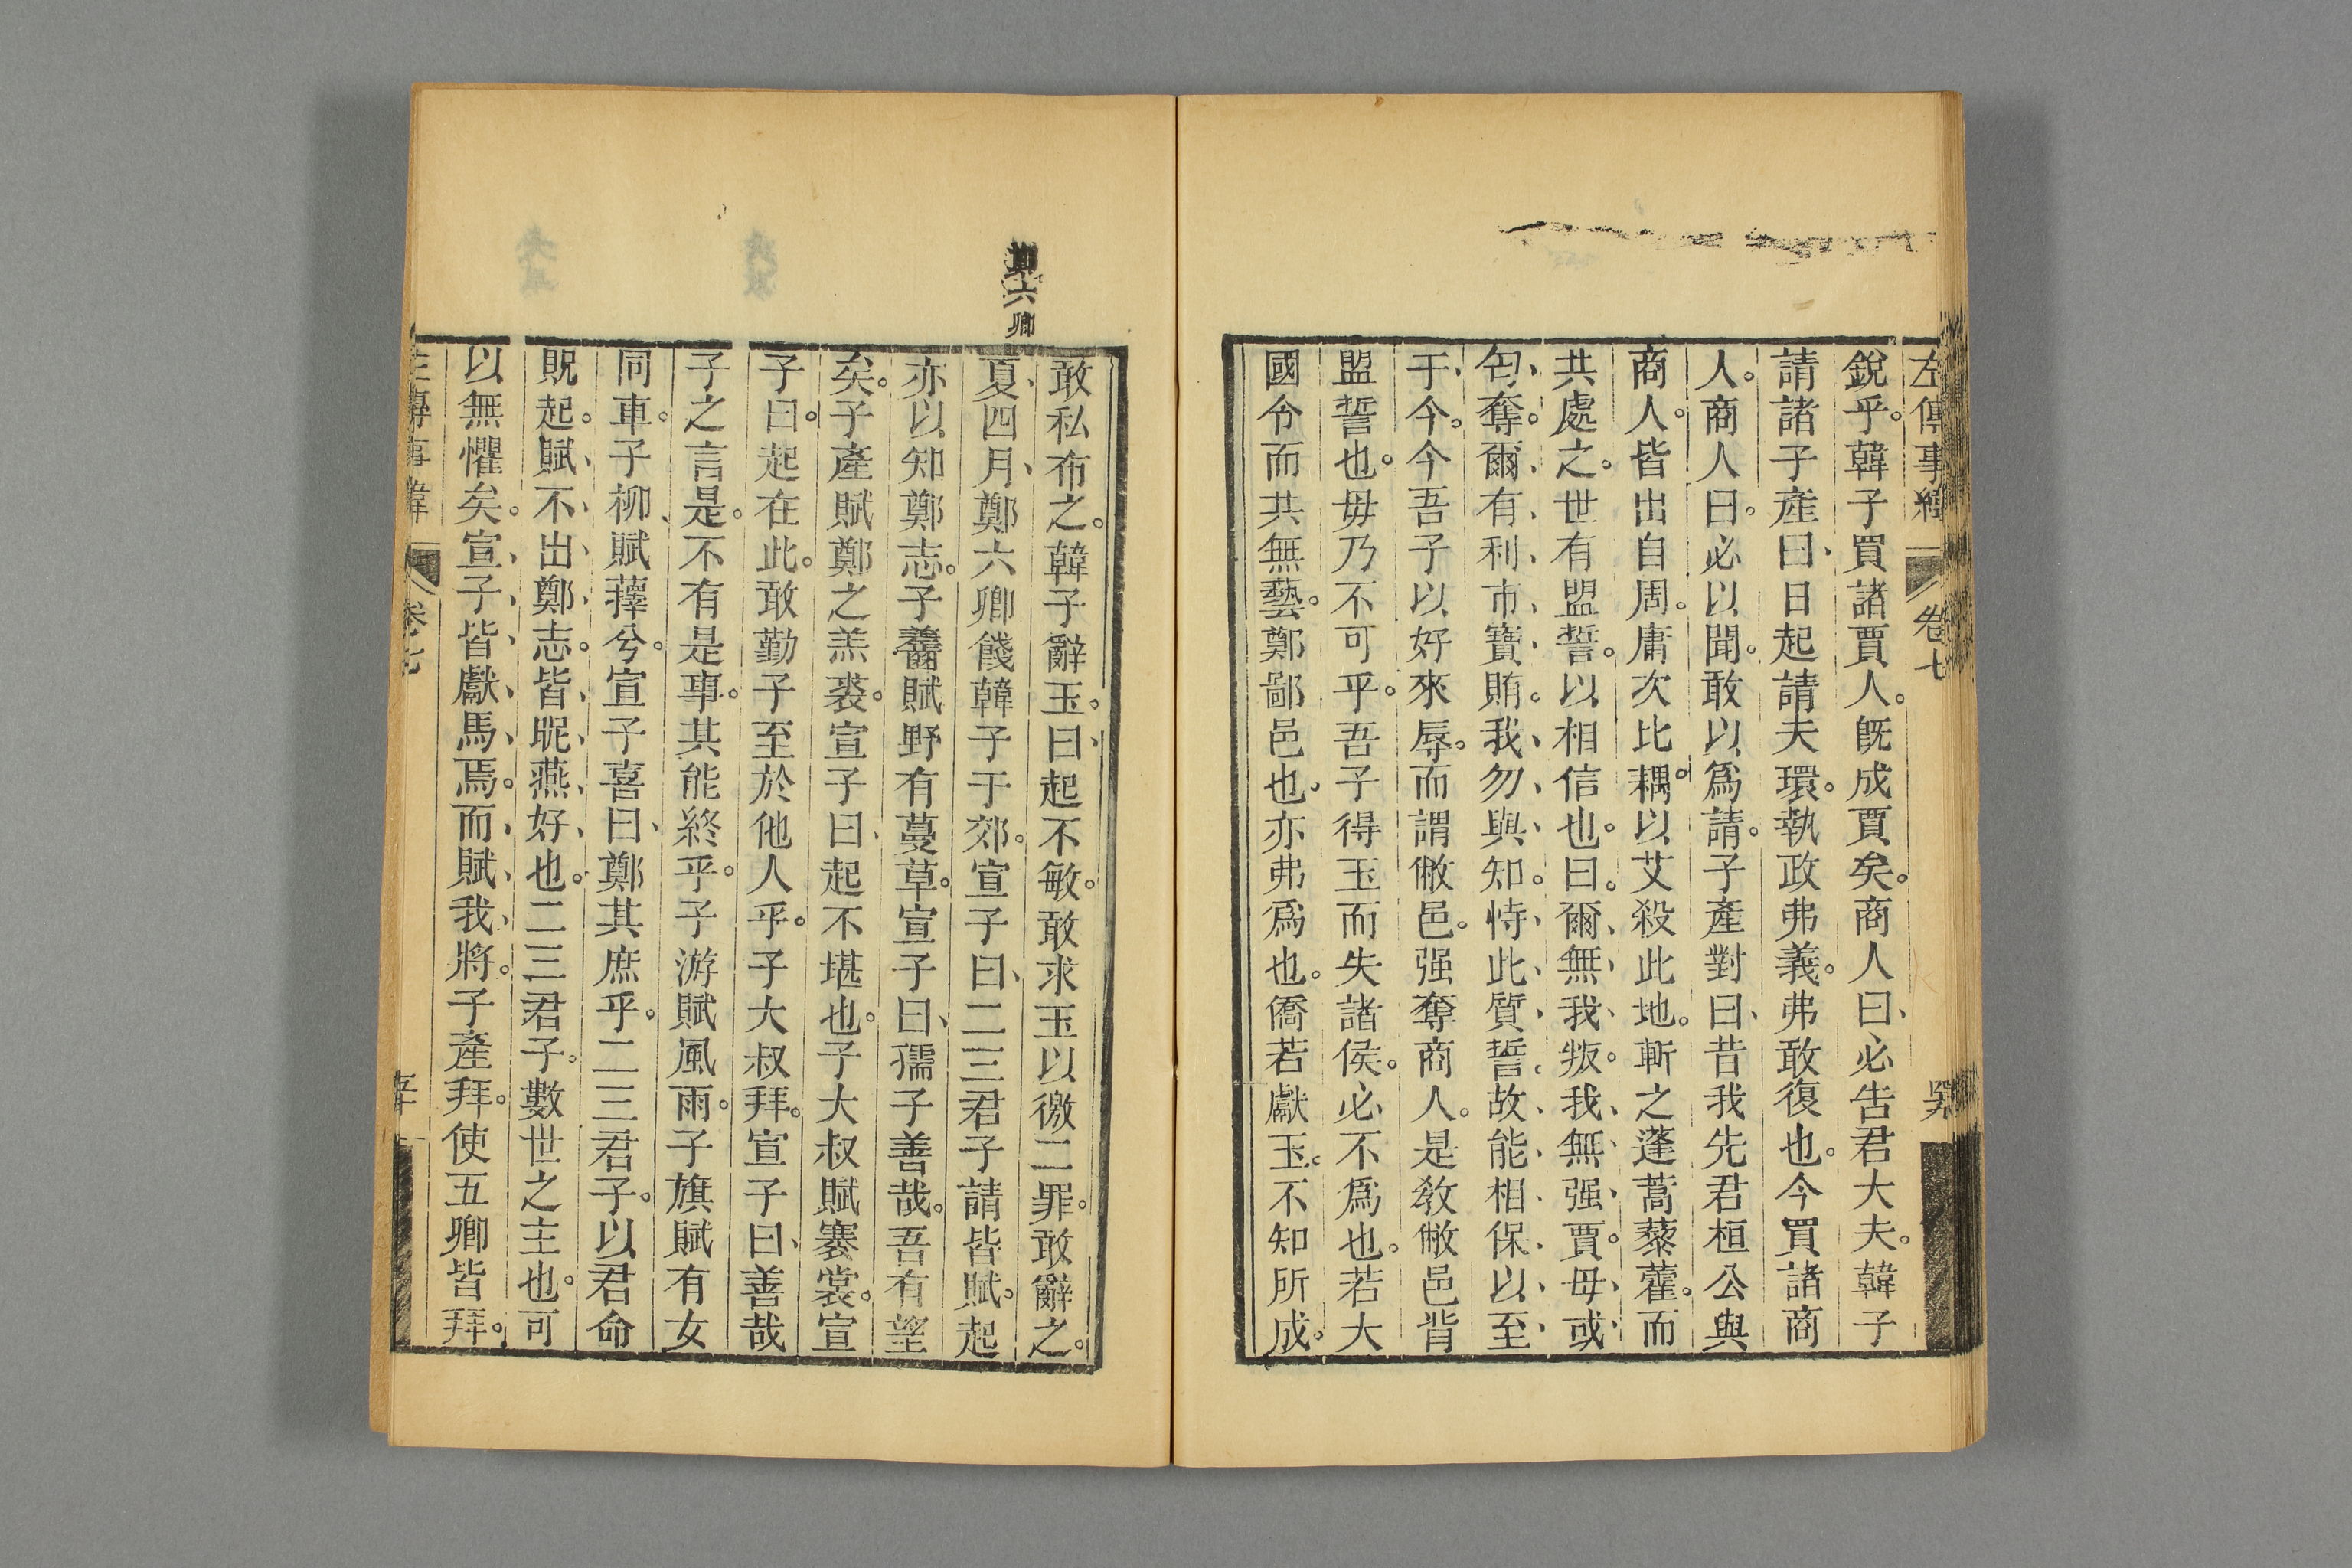 左傳事緯
卷七
銳乎。韓子買諸賈人。旣成賈矣。商人曰、必告君大夫。韓子
請諸子產曰、日起請夫環。執政弗義。弗敢復也。今買諸商
人。商人曰。必以聞。敢以爲請。子產對曰、昔我先君桓公與
商人。皆出自周。庸次比耦。以艾殺此地。斬之蓬蒿藜藿。而
共處之。世有盟誓。以相信也。曰。爾、無、我、叛。我、無、强、賈。毋、或、
匄、奪。爾、有、利、市、寶、賄。我、勿、與、知。恃、此、質、誓。故、能、相、保、以、至、
于、今。今吾子以好來辱。而謂敝邑。强奪商人。是敎敝邑背
盟誓也。毋乃不可乎。吾子得玉而失諸侯。必不爲也。若大
國令而共無藝。鄭鄙邑也、亦弗爲也。僑若獻玉。不知所成。
鄭六卿
敢私布之。韓子辭玉。曰、起不敏。敢求玉以徼二罪。敢辭之。
夏、四月、鄭六卿餞韓子于郊。宣子曰、二三君子請皆賦。起
亦以知鄭志。子齹賦野有蔓草。宣子曰、孺子善哉。吾有望
矣。子產賦鄭之羔裘。宣子曰、起不堪也。子大叔賦褰裳。宣
子曰。起在此。敢勤子至於他人乎。子大叔拜。宣子曰、善哉
子之言是。不有是事。其能終乎。子游賦風雨。子旗賦有女
同車。子柳、賦蘀兮。宣子喜曰、鄭其庶乎。二三君子。以君命
貺起。賦、不、出、鄭、志。皆、昵、燕、好、也。二三君子。數世之主也。可
以無懼矣。宣、子、皆、獻、馬、焉。而、賦、我、將。子產拜。使五卿皆拜。
左傳事緯
卷七